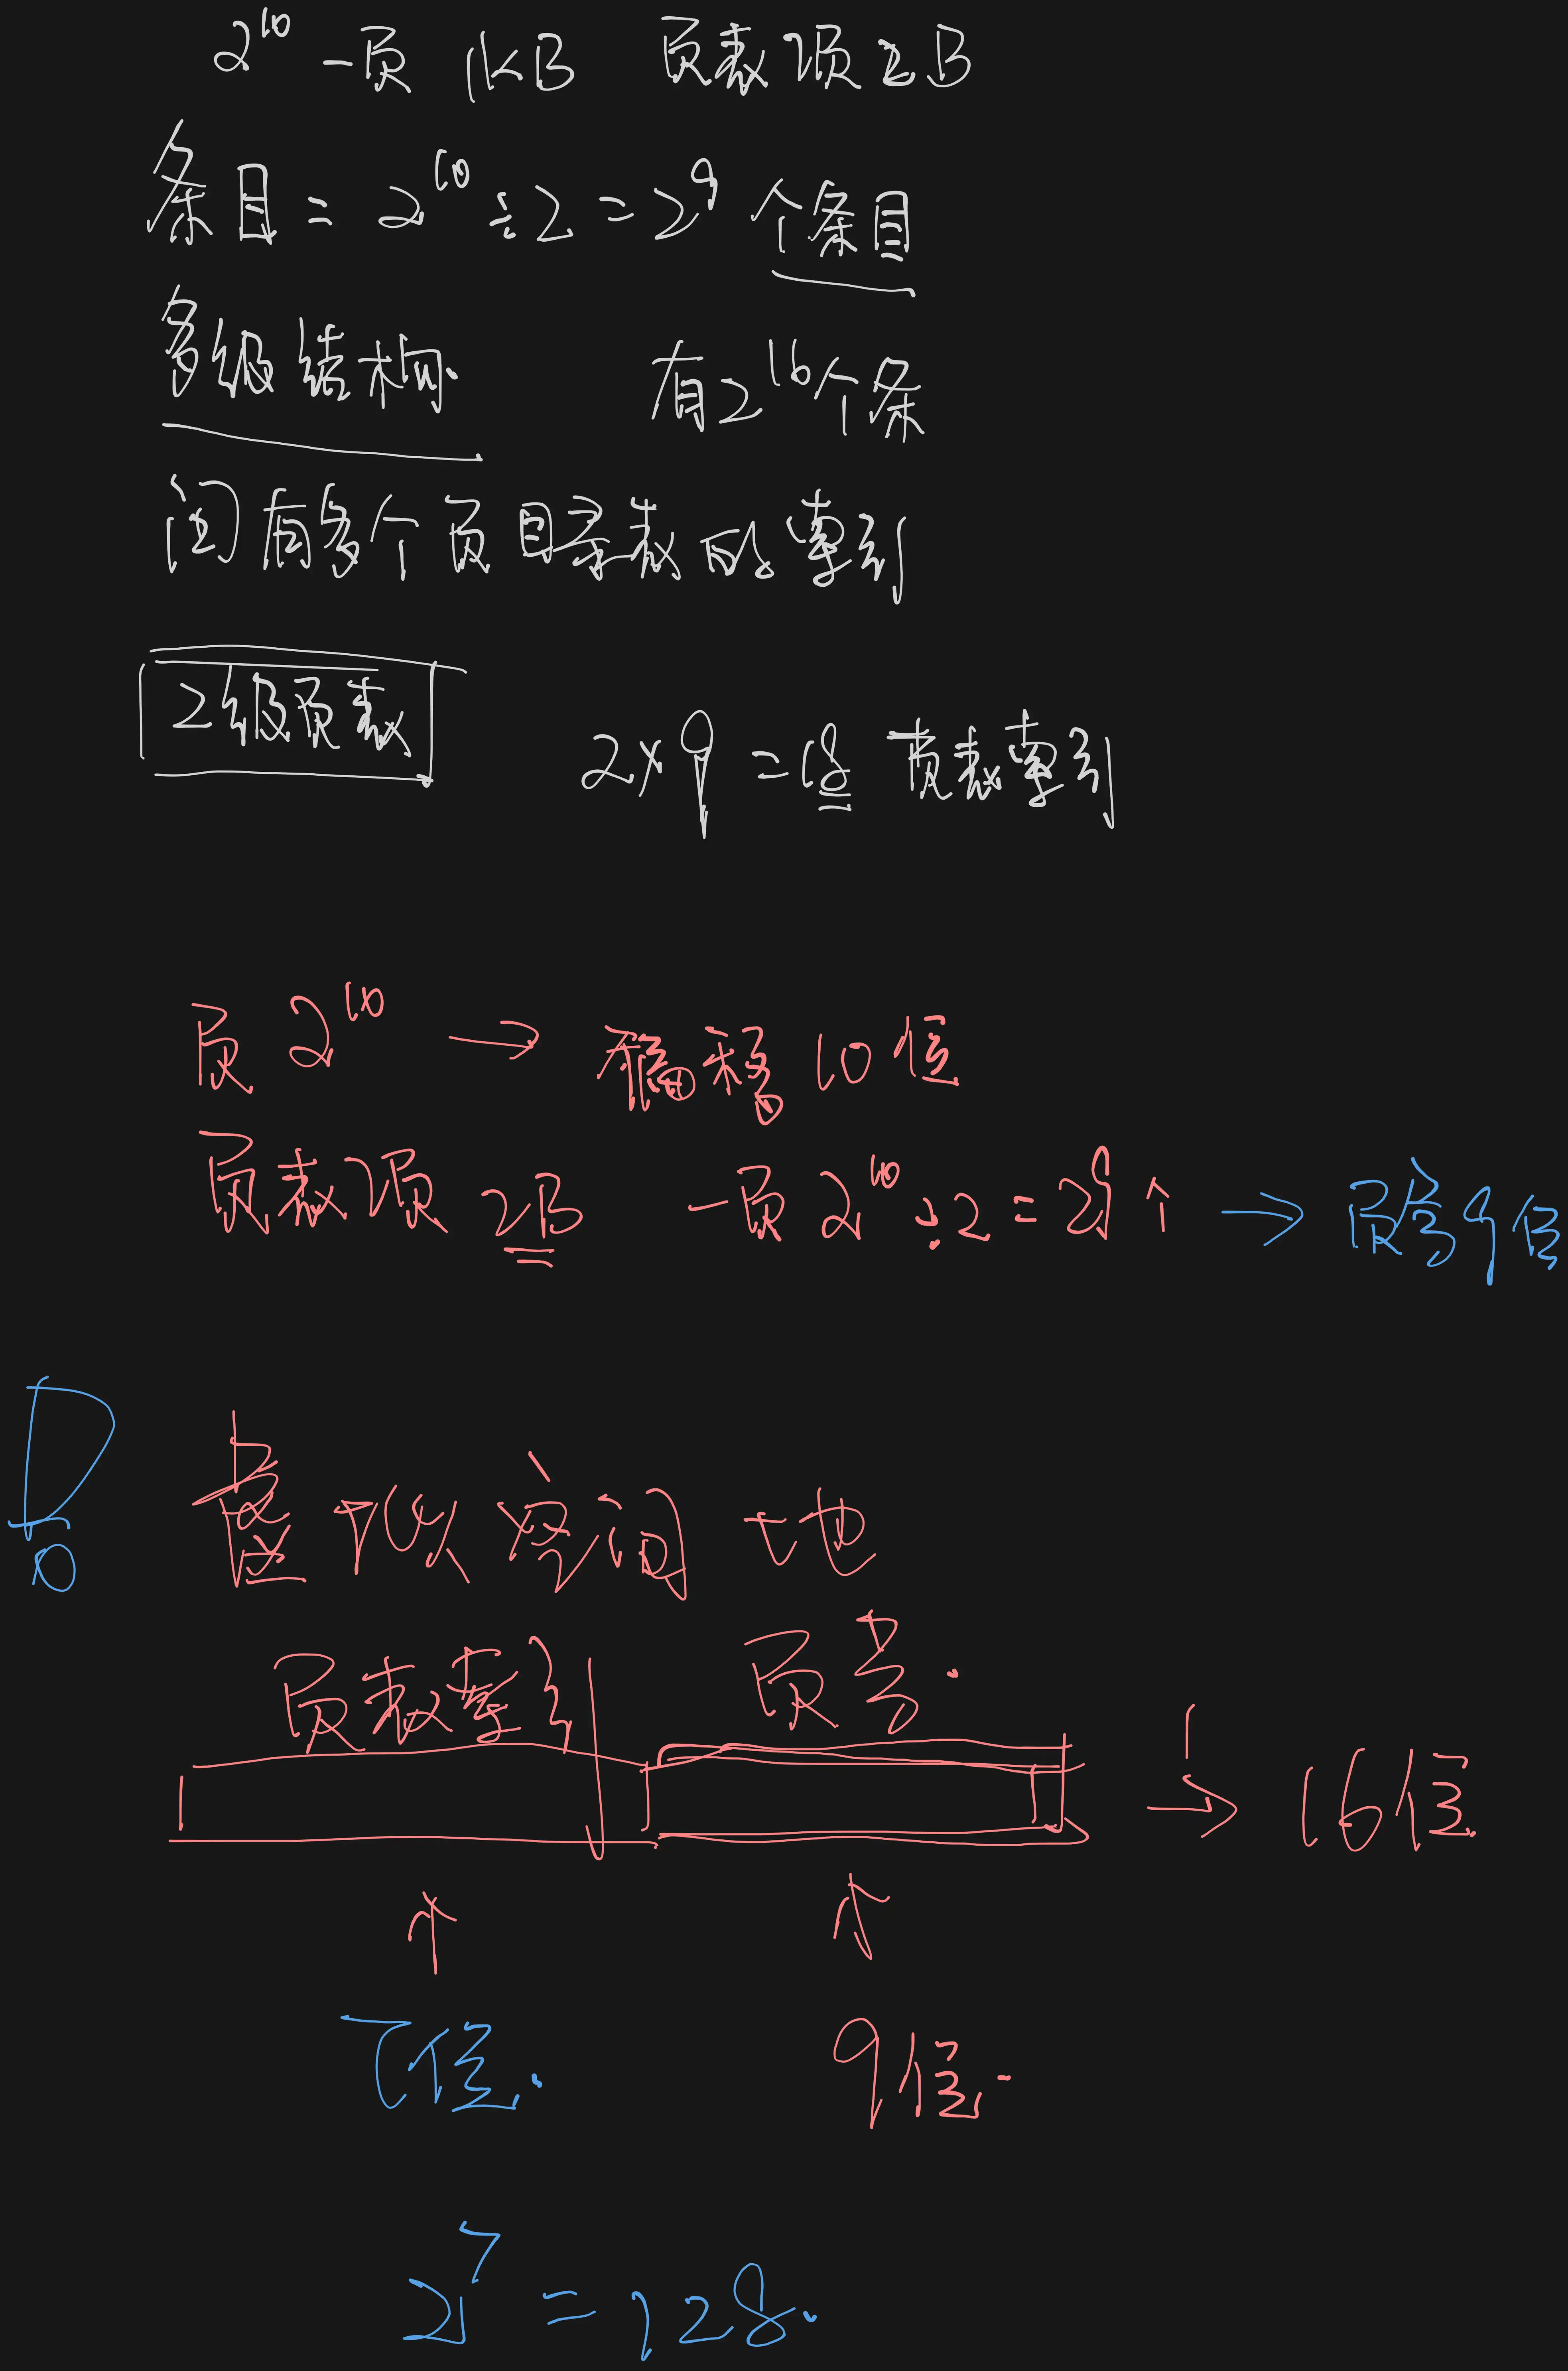 2^10 一页 1KB 页表项2B
条目 = 2^10 ÷ 2 = 2^9 个条目
多级结构. 有2^16个条
问有多个页目录表的索引
2级页表
2×9 = 18 页表索引
页 2^10 → 偏移 10位
页表项 2B 一页 2^10 ÷ 2 = 2^9 个 → 页号9位
虚拟空间 地
页表索引 页号.
→ 16位
↑ ↑
7位. 9位.
2^7 = 128.